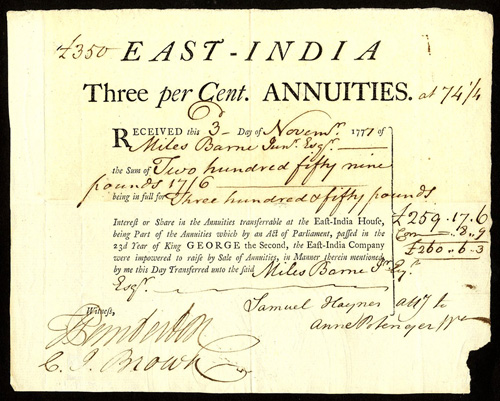 £350 EAST-INDIA
Three per Cent. ANNUITIES. at 74 1/4
RECEIVED this 3 Day of Novemr. 1777 of
Miles Barne Junr. Esqr.
the Sum of Two hundred fifty nine
pounds 17/6
being in full for Three hundred & fifty pounds
Interest or Share in the Annuities transferrable at the East-India House,
being Part of the Annuities which by an Act of Parliament, passed in the
23d Year of King GEORGE the Second, the East-India Company
were impowered to raise by Sale of Annuities, in Manner therein mentioned,
by me this Day Transferred unto the said Miles Barne Jr. Esqr.
Esqr.
£259.17.6
Com .. 8..9
£260..6..3
Witness,
Samuel Haynes atty to
Anne
C. J. Brown